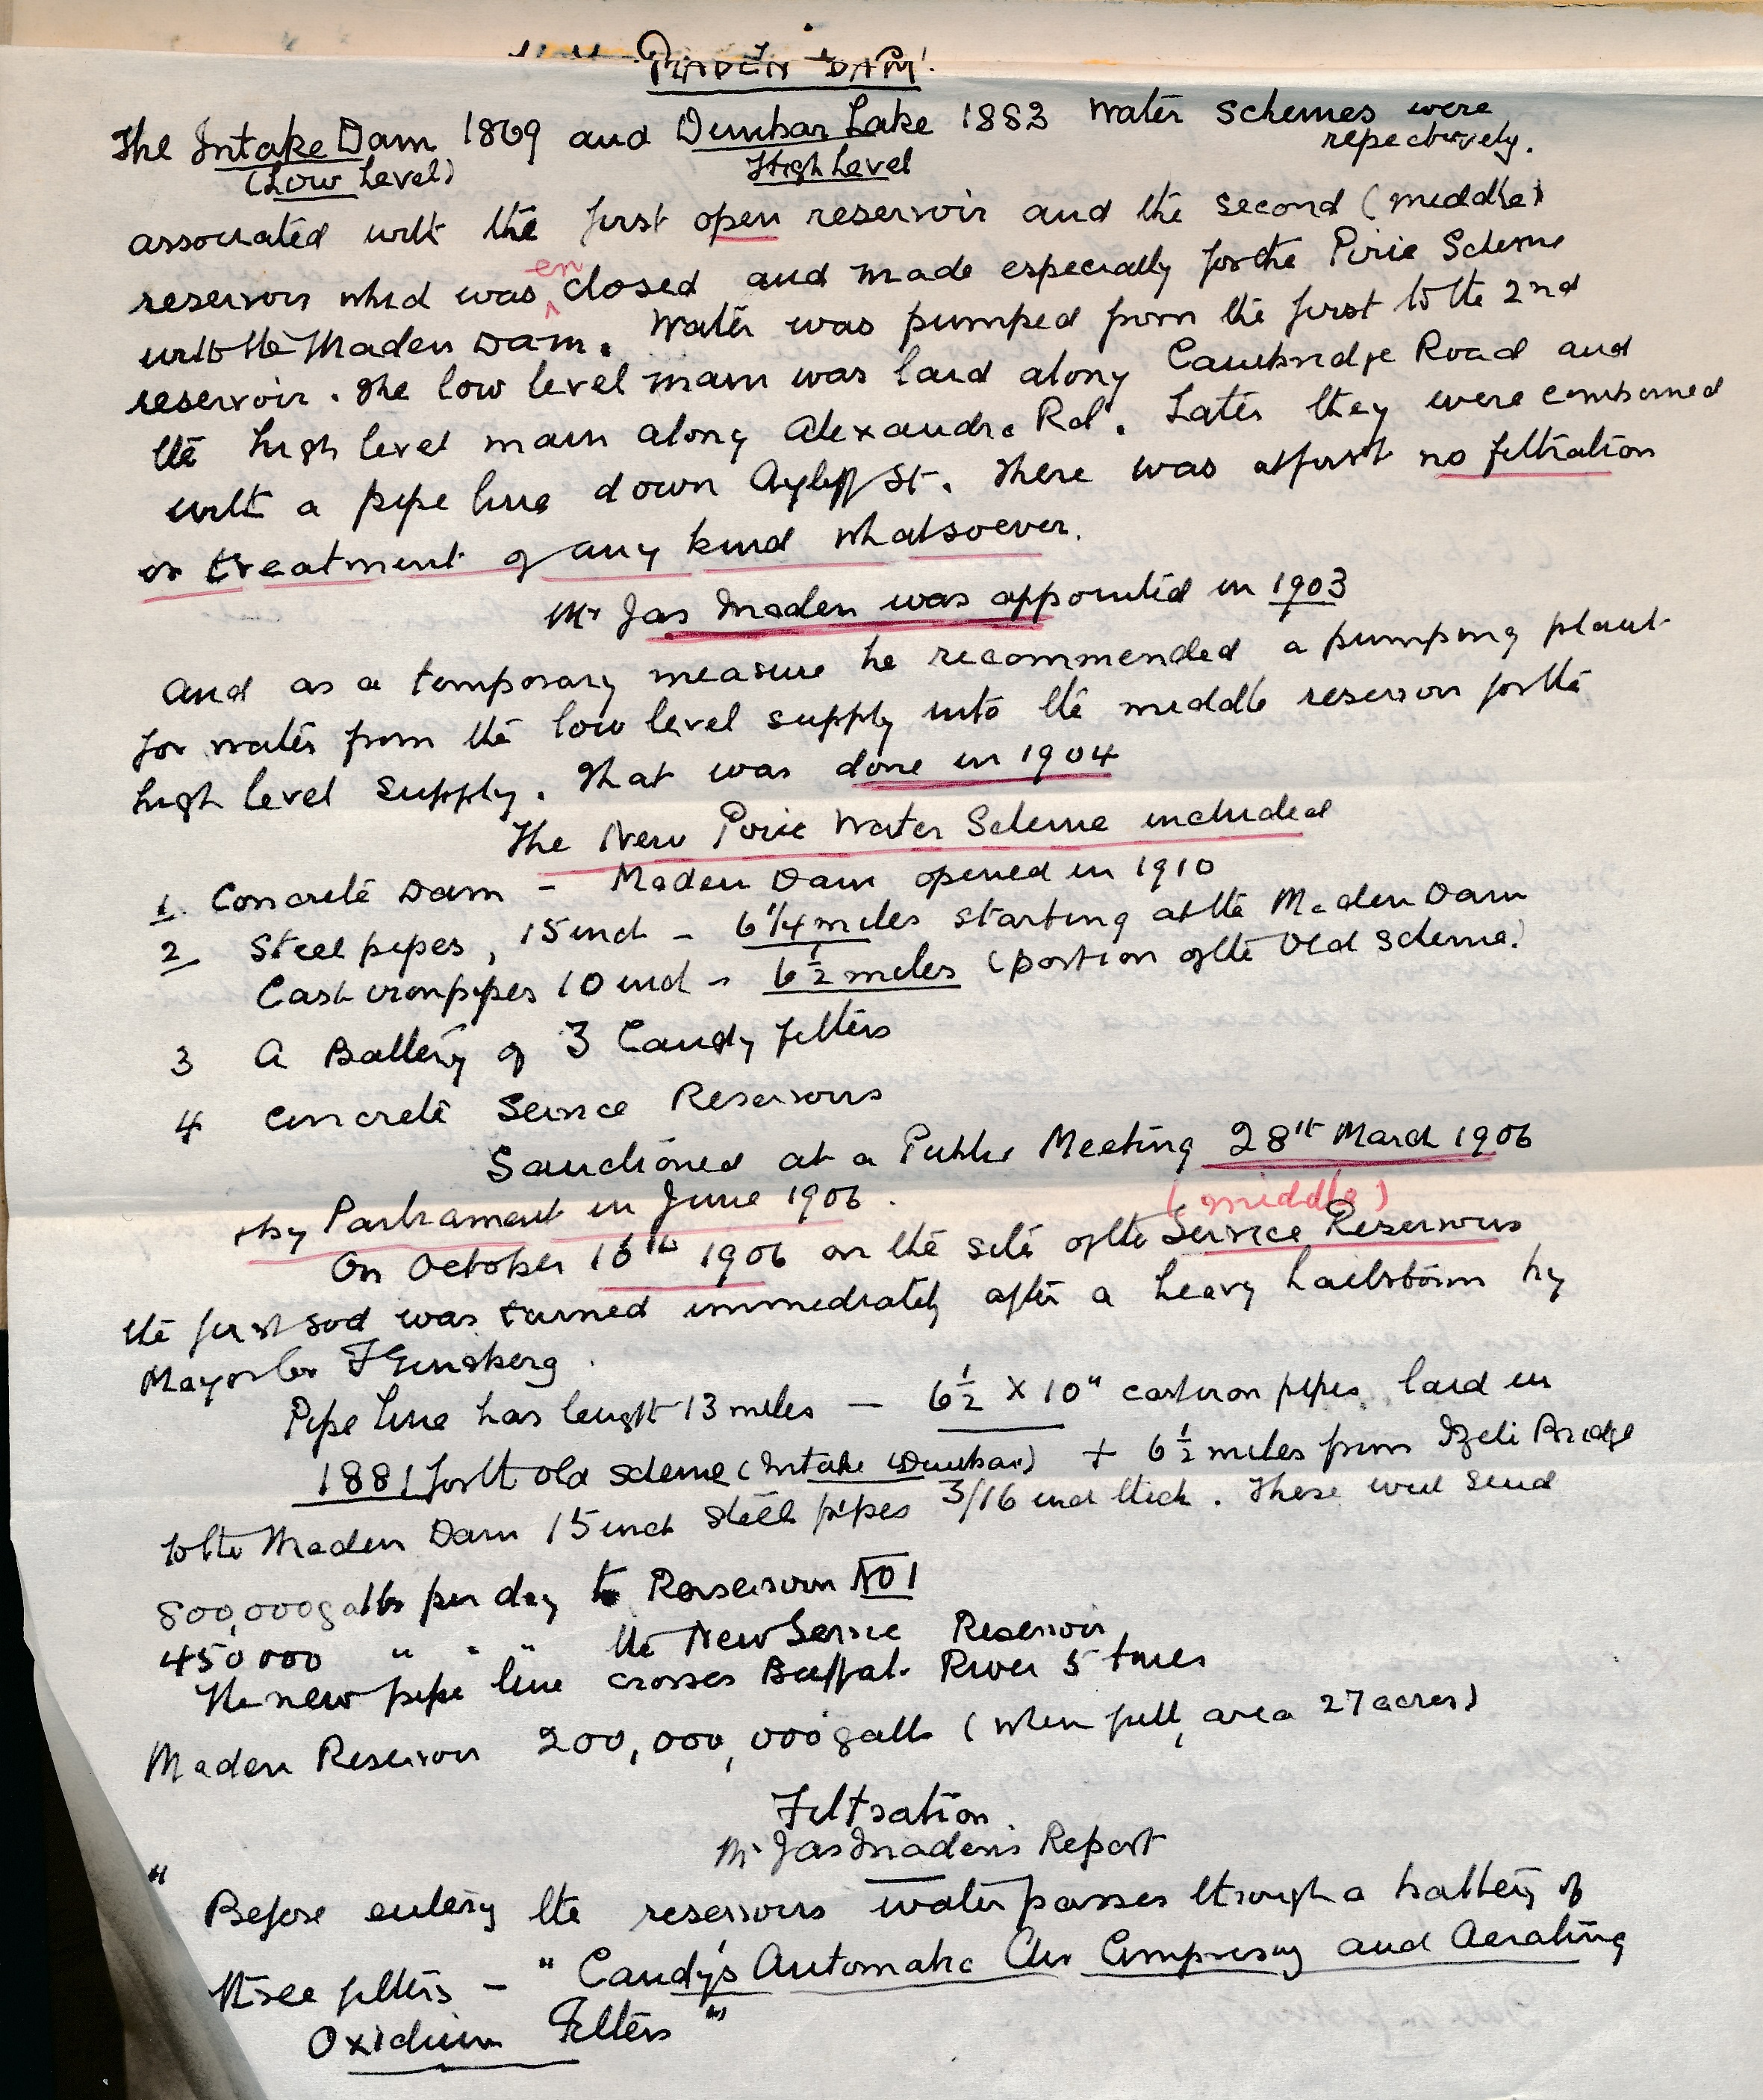 MADEN DAM.
The Intake Dam 1869 and Dunbar Lake 1883 Water Schemes were
repectively.
(Low Level) High Level
associated with the first open reservoir and the second (middle)
reservoir which was enclosed and made especially for the Pirie Scheme
with the Maden Dam. Water was pumped from the first to the 2nd
reservoir. The low level main was laid along Cambridge Road and
the high level main along Alexandra Rd. Later they were combined
with a pipe line down Ayliff St. There was at first no filtration
or treatment of any kind whatsoever.
Mr Jas Maden was appointed in 1903
and as a temporary measure he recommended a pumping plant
for water from the low level supply into the middle reservoir for the
high level supply. That was done in 1904
The New Pirie Water Scheme included
1. Concrete Dam - Maden Dam opened in 1910
2 Steel pipes, 15 inch - 6 1/4 miles starting at the Maden Dam
Cast iron pipes 10 inch - 6 1/2 miles (portion of the Old Scheme)
3 A Battery of 3 Candy filters
4 Concrete Service Reservoirs
Sanctioned at a Public Meeting 28th March 1906
+ by Parliament in June 1906.
(middle)
On October 16th 1906 on the site of the Service Reservoirs
the first sod was turned immediately after a heavy hailstorm by
Mayor Cr F Ginsberg.
Pipe line has length 13 miles - 6 1/2 x 10" cast iron pipes laid in
1881 for the old scheme (Intake Dunbar) + 6 1/2 miles from Izeli Bridge
to the Maden Dam 15 inch steel pipes 3/16 inch thick. These will send
800,000 galls per day to Reservoir NO 1
450000 " " " the New Service Reservoir
The new pipe line crosses Buffalo River 5 times
Maden Reservoir 200,000,000 galls (when full, area 27 acres)
Filtration
Mr Jas Maden's Report
" Before entering the reservoirs water passes through a battery of
three filters - "Candy's Automatic Air Compressing and Aerating
Oxidium Filters"